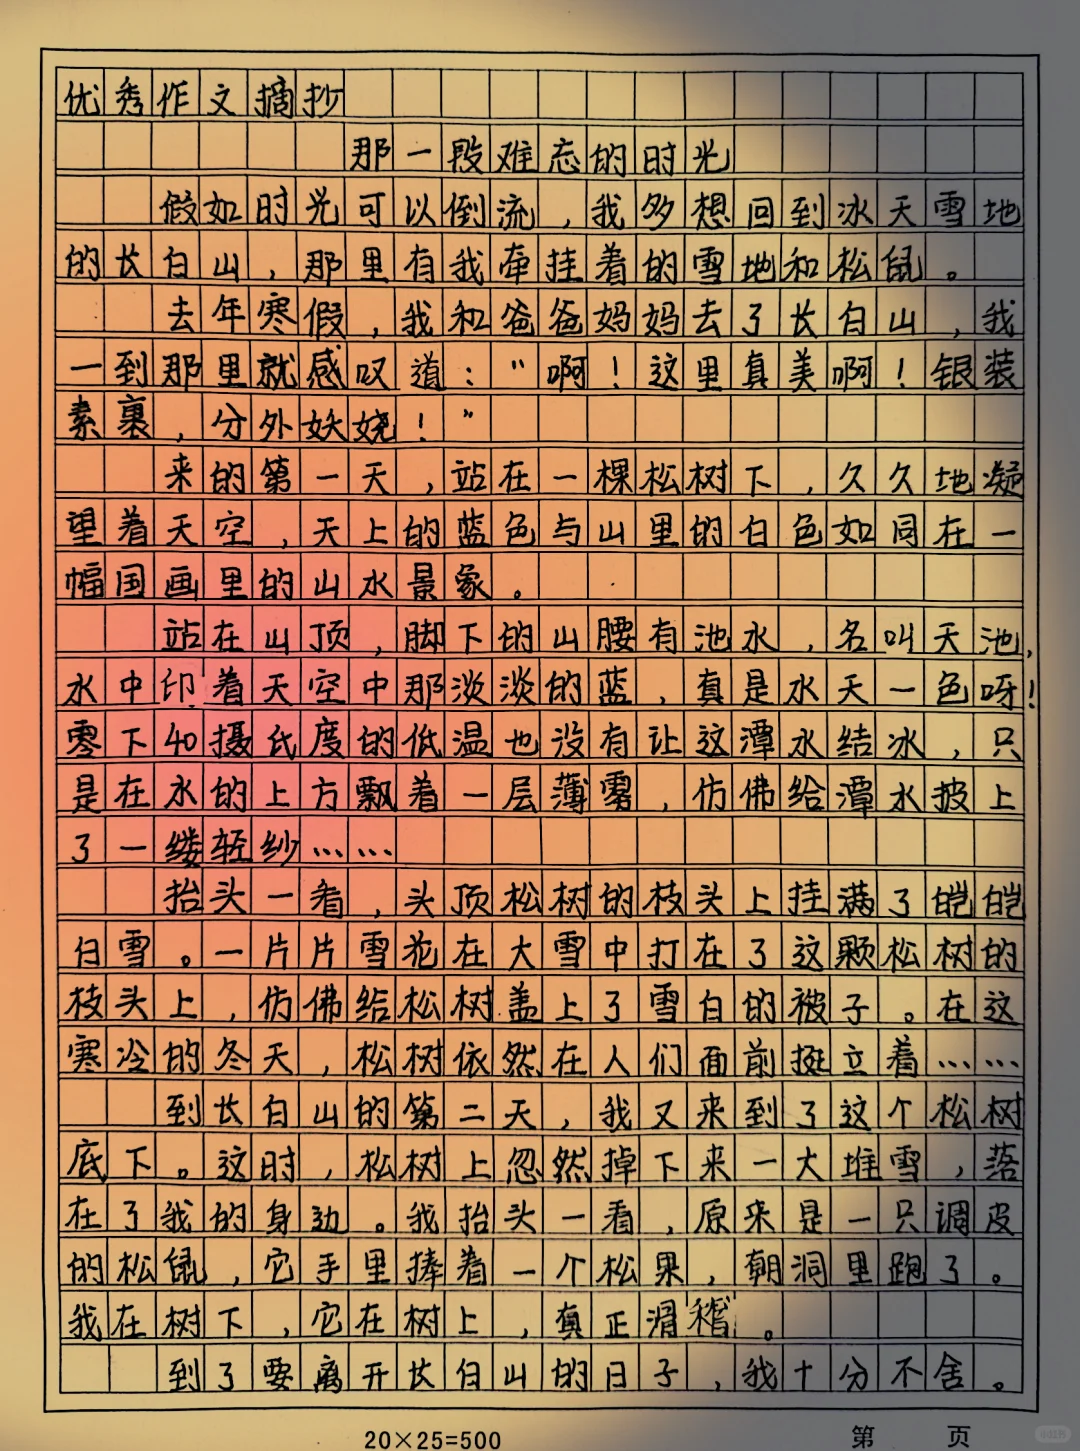 优秀作文摘抄
那一段难忘的时光
假如时光可以倒流，我多想回到冰天雪地
的长白山，那里有我牵挂着的雪地和松鼠。
去年寒假，我和爸爸妈妈去了长白山，我
一到那里就感叹道："啊！这里真美啊！银装
素裹，分外妖娆！"
来的第一天，站在一棵松树下，久久地凝
望着天空，天上的蓝色与山里的白色如同在一
幅国画里的山水景象。
站在山顶，脚下的山腰有池水，名叫天池，
水中印着天空中那淡淡的蓝，真是水天一色呀！
零下40摄氏度的低温也没有让这潭水结冰，只
是在水的上方飘着一层薄雾，仿佛给潭水披上
了一缕轻纱……
抬头一看，头顶松树的枝头上挂满了皑皑
白雪。一片片雪花在大雪中打在了这颗松树的
枝头上，仿佛给松树盖上了雪白的被子。在这
寒冷的冬天，松树依然在人们面前挺立着……
到长白山的第二天，我又来到了这个松树
底下。这时，松树上忽然掉下来一大堆雪，落
在了我的身边。我抬头一看，原来是一只调皮
的松鼠，它手里捧着一个松果，朝洞里跑了。
我在树下，它在树上，真正滑稽。
到了要离开长白山的日子，我十分不舍。
20×25=500
第 页
小红书